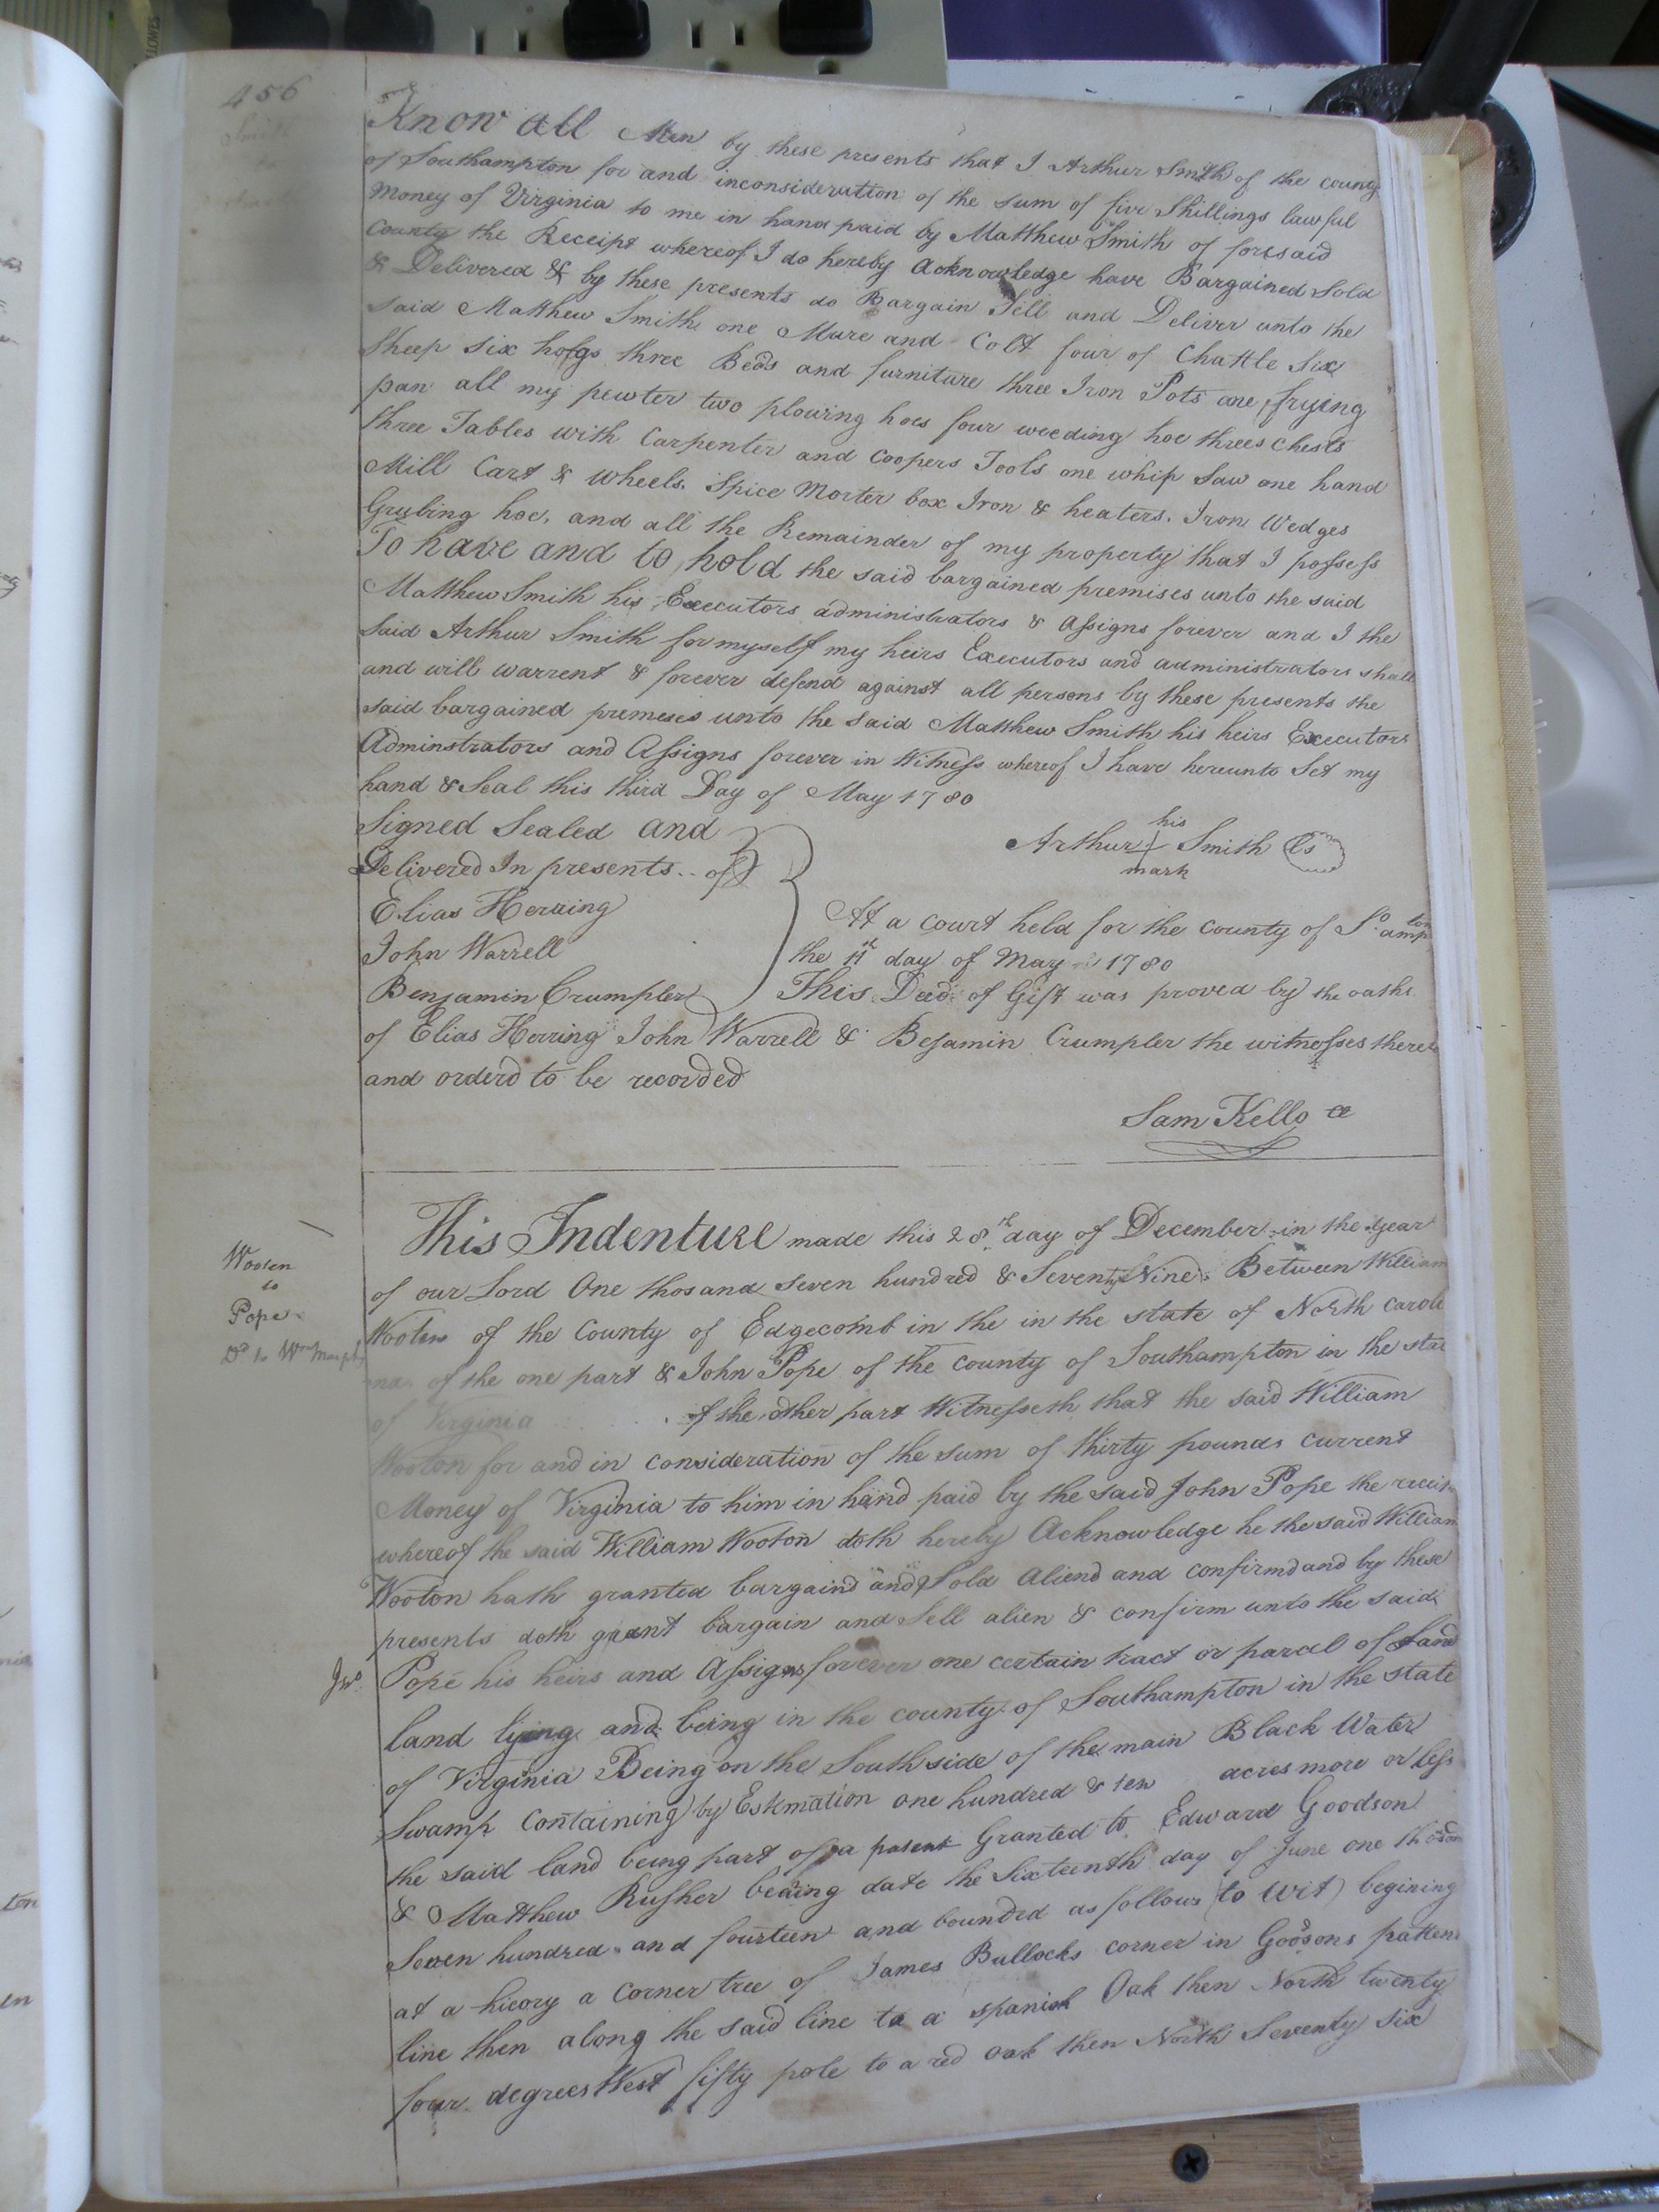 456
Smith
to
Smith
Know All Men by these presents that I Arthur Smith of the county
of Southampton for and inconsideration of the sum of five Shillings lawful
Money of Virginia to me in hand paid by Matthew Smith of foresaid
County the Receipt whereof I do hereby Acknowledge have Bargained Sold
& Delivered & by these presents do Bargain Sell and Deliver unto the
said Matthew Smith one Mare and Colt four of Chattle Six
Sheep six hofgs three Beds and furniture three Iron Pots one frying
pan all my pewter two plowing hoes four weeding hoe threes chests
three Tables with Carpenter and Coopers Tools one whip Saw one hand
Mill Cart & Wheels. Spice Morter box Iron & heaters. Iron Wedges
Grubing hoe, and all the Remainder of my property that I possess
To have and to hold the said bargained premises unto the said
Matthew Smith his Executors administrators & Assigns forever and I the
Said Arthur Smith for myself my heirs Executors and administrators shall
and will warrent & forever defend against all persons by these presents the
said bargained premeses unto the said Matthew Smith his heirs Executors
Adminstrators and Assigns forever in Witness whereof I have hereunto Set my
hand & Seal this third Day of May 1780
Signed Sealed and
Delivered In presents .. of
his
Arthur + Smith Ls
mark
Elias Herring
John Warrell
Benjamin Crumpler
At a court held for the county of So. ampton
the 11th day of May 1780
This Deed of Gift was proved by the oaths
of Elias Herring John Warrell & Bejamin Crumpler the witnesses thereto
and orderd to be recorded
Sam Kello cc
Wooten
to
Pope
Dd to Wm Murphy
This Indenture made this 28th day of December in the year
of our Lord One thosand seven hundred & Seventy Nine Between William
Wooten of the County of Edgecomb in the in the state of North Caroli
na of the one part & John Pope of the County of Southampton in the stat
of Virginia of the other part Witnesseth that the said William
Wooton for and in consideration of the sum of thirty pounds current
Money of Virginia to him in hand paid by the said John Pope the receit
whereof the said William Wooton doth hereby Acknowledge he the said William
Wooton hath granted bargaind and Sold Aliend and confirmd and by these
presents doth grant bargain and Sell alien & confirm unto the said
Jno. Pope his heirs and Assigns forever one certain tract or parcel of Land
land lying and being in the county of Southampton in the state
of Virginia Being on the South side of the main Black Water
Swamp containing by Estimation one hundred & ten acres more or less
the said land being part of a patent Granted to Edward Goodson
& Matthew Rusher bearing date the Sixteenth day of June one thosand
Seven hundred and fourteen and bounded as follows (to Wit) begining
at a hicory a corner tree of James Bullocks corner in Goodsons patten
line then along the said line to a spanish Oak then North twenty
four degrees West fifty pole to a red oak then North Seventy six